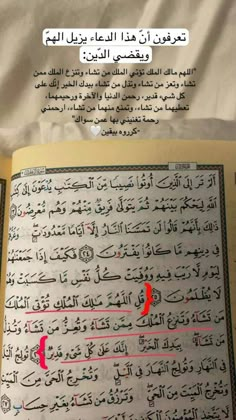 تعرفون أنّ هذا الدعاء يزيل الهمّ
ويقضي الدّين:
"اللهم مالك الملك تؤتي الملك من تشاء وتنزع الملك ممن
تشاء وتعز من تشاء وتذل من تشاء بيدك الخير إنّك على
كل شيء قدير، رحمن الدنيا والآخرة ورحيمهما،
تعطيهما من تشاء، وتمنع منهما من تشاء، ارحمني
رحمة تغنيني بها عمن سواك"
-كرروه بيقين🤍
أَلَمْ تَرَ إِلَى ٱلَّذِينَ أُوتُوا۟ نَصِيبًا مِّنَ ٱلْكِتَـٰبِ يُدْعَوْنَ إِلَىٰ كِتَـٰبِ
ٱللَّهِ لِيَحْكُمَ بَيْنَهُمْ ثُمَّ يَتَوَلَّىٰ فَرِيقٌ مِّنْهُمْ وَهُم مُّعْرِضُونَ
ذَٰلِكَ بِأَنَّهُمْ قَالُوا۟ لَن تَمَسَّنَا ٱلنَّارُ إِلَّآ أَيَّامًا مَّعْدُودَٰتٍ
فِى دِينِهِم مَّا كَانُوا۟ يَفْتَرُونَ ٢٤ فَكَيْفَ إِذَا جَمَعْنَـٰهُمْ
لِيَوْمٍ لَّا رَيْبَ فِيهِ وَوُفِّيَتْ كُلُّ نَفْسٍ مَّا كَسَبَتْ وَهُمْ
لَا يُظْلَمُونَ ٢٥ قُلِ ٱللَّهُمَّ مَـٰلِكَ ٱلْمُلْكِ تُؤْتِى ٱلْمُلْكَ
مَن تَشَآءُ وَتَنزِعُ ٱلْمُلْكَ مِمَّن تَشَآءُ وَتُعِزُّ مَن تَشَآءُ وَتُذِلُّ
مَن تَشَآءُ بِيَدِكَ ٱلْخَيْرُ إِنَّكَ عَلَىٰ كُلِّ شَىْءٍ قَدِيرٌ تُولِجُ ٱلَّيْلَ
فِى ٱلنَّهَارِ وَتُولِجُ ٱلنَّهَارَ فِى ٱلَّيْلِ وَتُخْرِجُ ٱلْحَىَّ مِنَ ٱلْمَيِّتِ
وَتُخْرِجُ ٱلْمَيِّتَ مِنَ ٱلْحَىِّ وَتَرْزُقُ مَن تَشَآءُ بِغَيْرِ حِسَابٍ